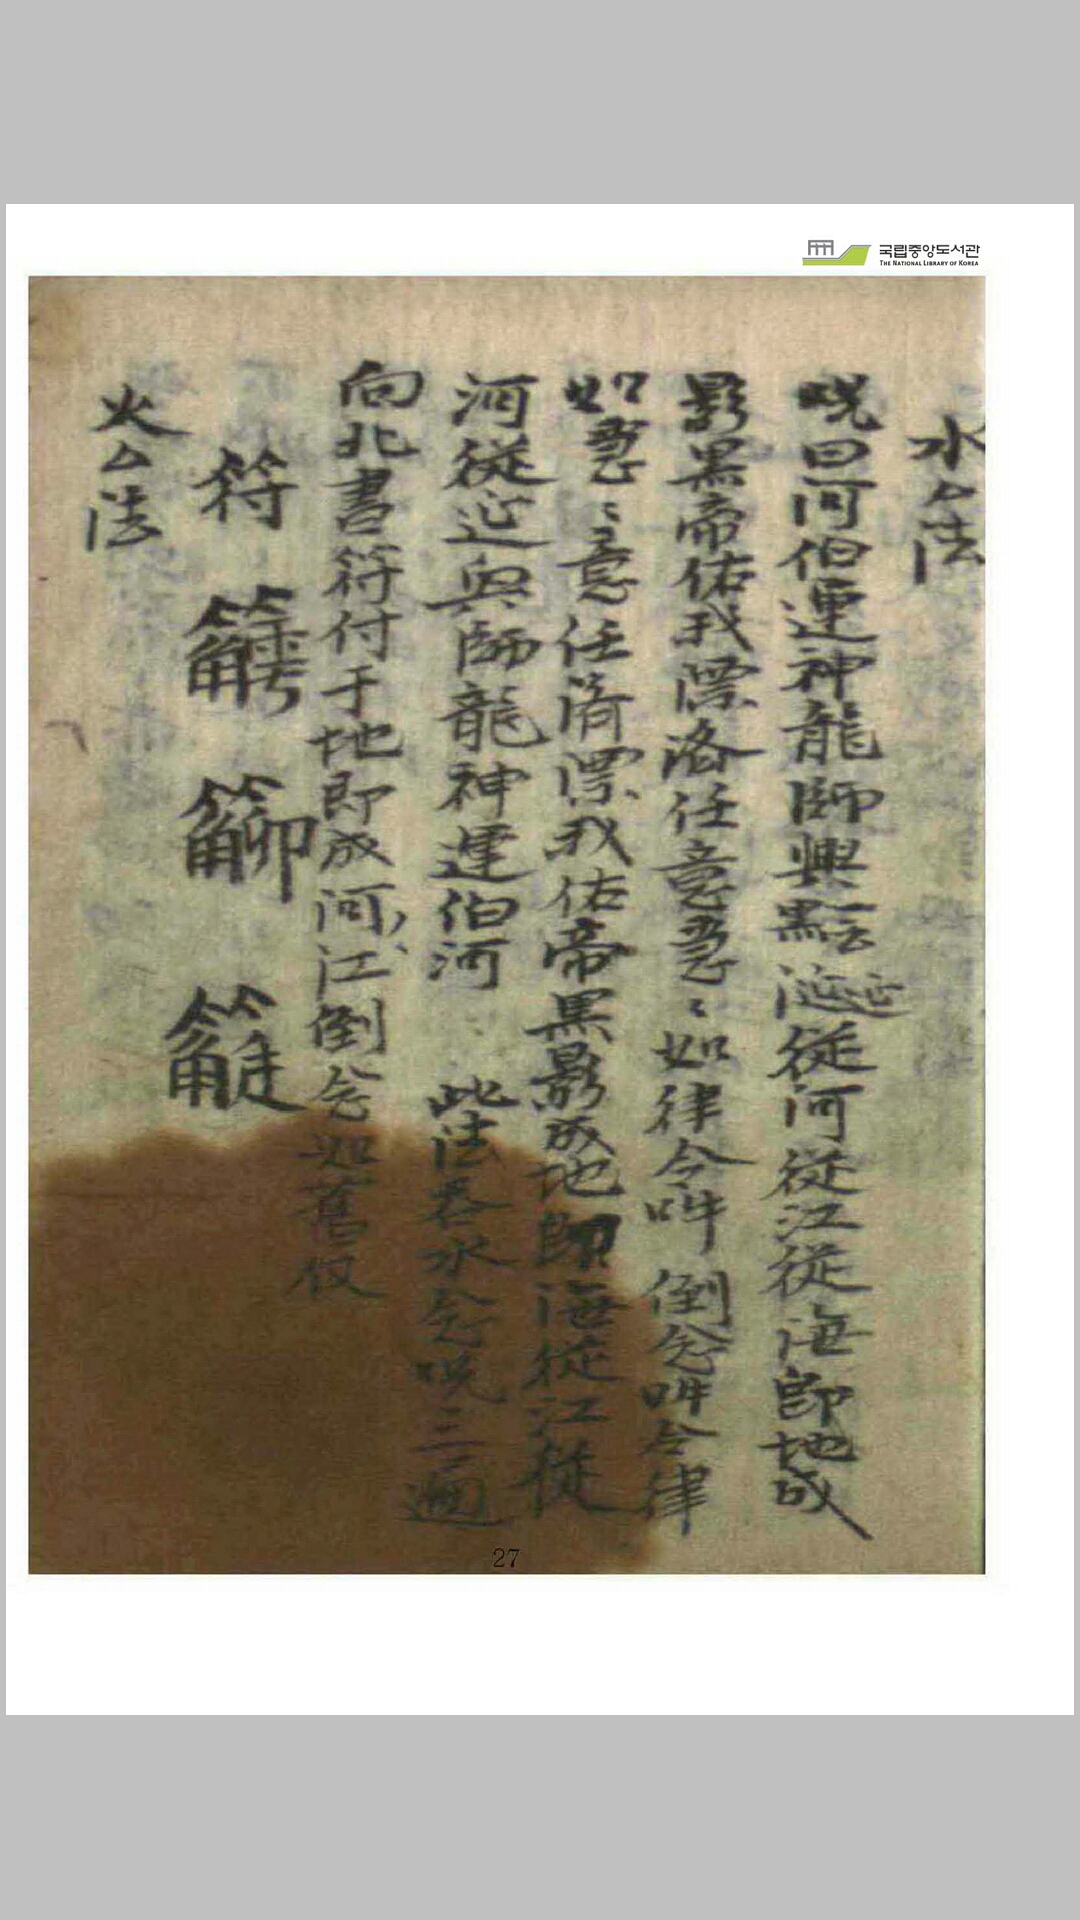 국립중앙도서관
THE NATIONAL LIBRARY OF KOREA
水厶法
呪曰河伯運神龍師興從河從江從海即地成
影黑帝佑我漂洛任意急〻如律令吽 倒念吽令律
如急〻意任漂我佑帝黑影成地即海從江從
河從師龍神運伯河 此法呑水念呪三遍
向北書符付于地即成河江倒念如舊
符
火厶法
27